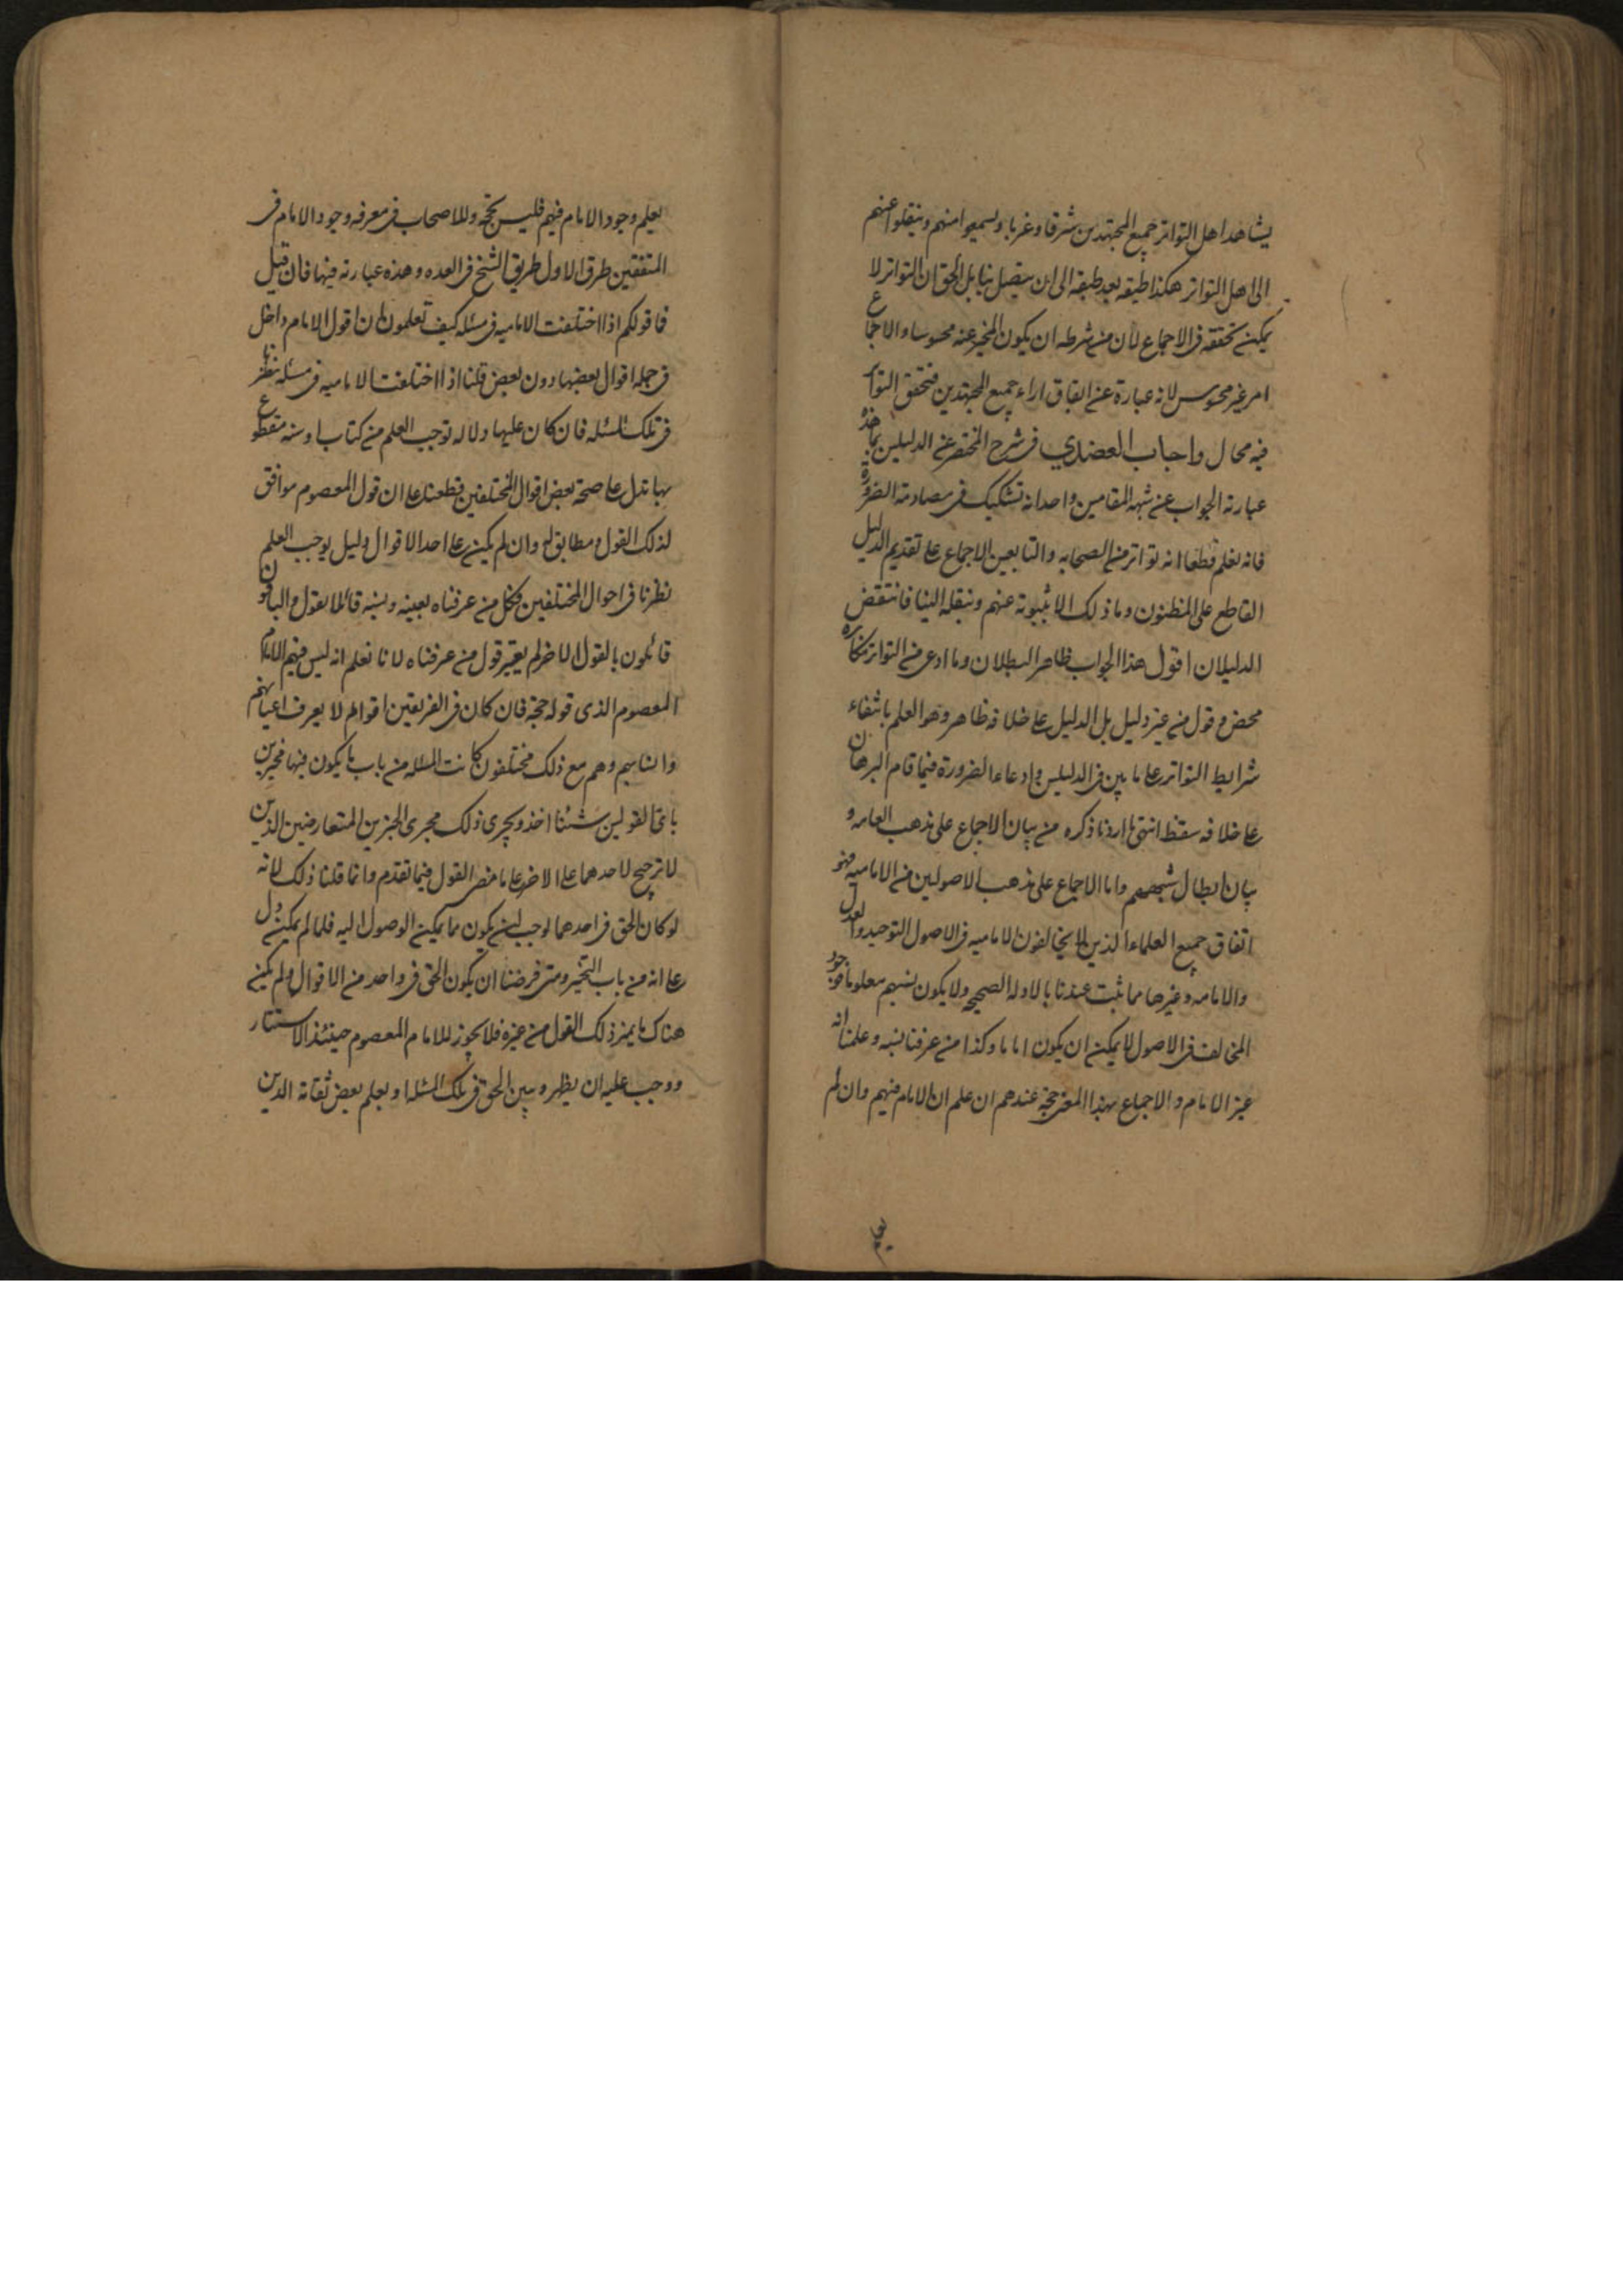 يشاهد اهل التواتر جميع المجتهدين شرقا وغربا ويسمعوا منهم وينقلوا عنهم
الى اهل التواتر هكذا طبقه بعد طبقه الى ان يتصل بنا بل الحق ان التواتر لا
يمكن تحققه فى الاجماع لان من شرطه ان يكون المخبر عنه محسوسا والاجماع
امر غير محسوس لانه عبارة عن اتفاق اراء جميع المجتهدين فتحقق التواتر
فيه محال واجاب العضدي فى شرح المختصر عن الدليلين بما هذه
عبارته الجواب عن شبهه المقامين واحد انه تشكيك فى مصادمة الضرورة
فانه نعلم قطعا انه تواتر من الصحابه والتابعين الاجماع على تقديم الدليل
القاطع على المظنون وما ذلك الا بثبوته عنهم وبنقله الينا فانتقض
الدليلان اقول هذا الجواب ظاهر البطلان وما ادعى من التواتر مكابره
محض وقول من غير دليل بل الدليل على خلافه ظاهر وهو العلم بانتفاء
شرايط التواتر على ما بين فى الدليلين وادعاء الضرورة فيما قام البرهان
على خلافه سقط انتهى ما اردنا ذكره من بيان الاجماع على مذهب العامه و
بيان ابطال شبههم واما الاجماع على مذهب الاصولين من الاماميه فهو
اتفاق جميع العلماء الذين لا يخالفون الاماميه فى الاصول التوحيد والعدل
والامامه وغيرها مما ثبت عندنا بالادله الصحيحه ولا يكون نسبهم معلوما فوجود
المخالف فى الاصول لا يمكن ان يكون اماما وكذا من عرفنا نسبه وعلمنا انه
غير الامام والاجماع بهذا المعنى حجة عندهم ان علم ان الامام فيهم وان لم
يعلم
يعلم وجود الامام فيهم فليس بحجة وللاصحاب فى معرفه وجود الامام فى
المتفقين طرق الاول طريق الشيخ فى العده وهذه عبارته فيها فان قيل
فما قولكم اذا اختلفت الاماميه فى مسئله كيف تعلمون ان قول الامام داخل
فى جمله اقوال بعضها دون بعض قلنا اذا اختلفت الاماميه فى مسئله نظرنا
فى تلك المسئله فان كان عليها دلاله توجب العلم من كتاب او سنه مقطوع
بها تدل على صحة بعض اقوال المختلفين قطعنا على ان قول المعصوم موافق
لذلك القول ومطابق له وان لم يكن على احد الاقوال دليل يوجب العلم
نظرنا فى احوال المختلفين فكل من عرفناه بعينه ونسبه قائلا بقول والباقون
قائلون بالقول الاخر لم يعتبر قول من عرفناه لانا نعلم انه ليس فيهم الامام
المعصوم الذى قوله حجة فان كان فى الفريقين اقوام لا يعرف اعيانهم
وانسابهم وهم مع ذلك مختلفون كانت المسئله من باب ما يكون فيها مخيرين
باى القولين شئنا اخذ ويجرى ذلك مجرى الخبرين المتعارضين الذين
لا ترجيح لاحدهما على الاخر على ما مضى القول فيما تقدم وانما قلنا ذلك لانه
لو كان الحق فى احدهما لوجب ان يكون مما يمكن الوصول اليه فلما لم يمكن دل
على انه من باب التخيير ومتى فرضنا ان يكون الحق فى واحد من الاقوال ولم يكن
هناك ما يميز ذلك القول من غيره فلا يجوز للامام المعصوم حينئذ الاستتار
ووجب عليه ان يظهر ويبين الحق فى تلك المسئلة او يعلم بعض ثقاته الذين